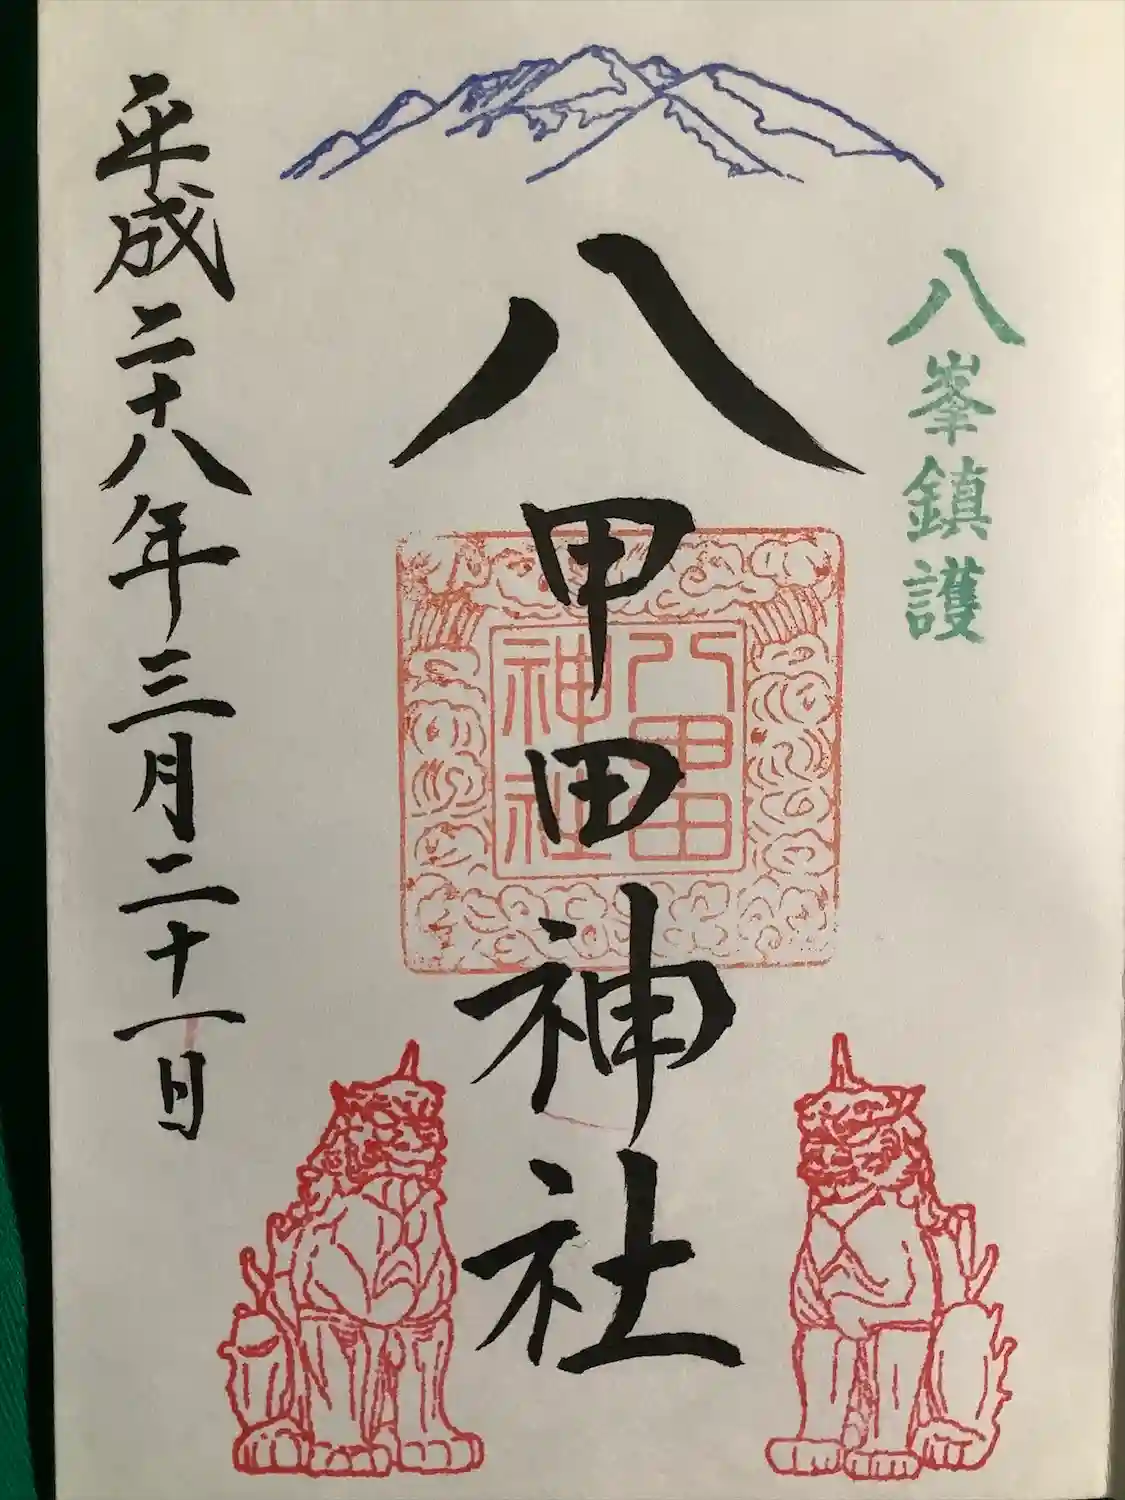 八峯鎮護
八甲田神社
八甲田
神社
平成二十八年三月二十一日